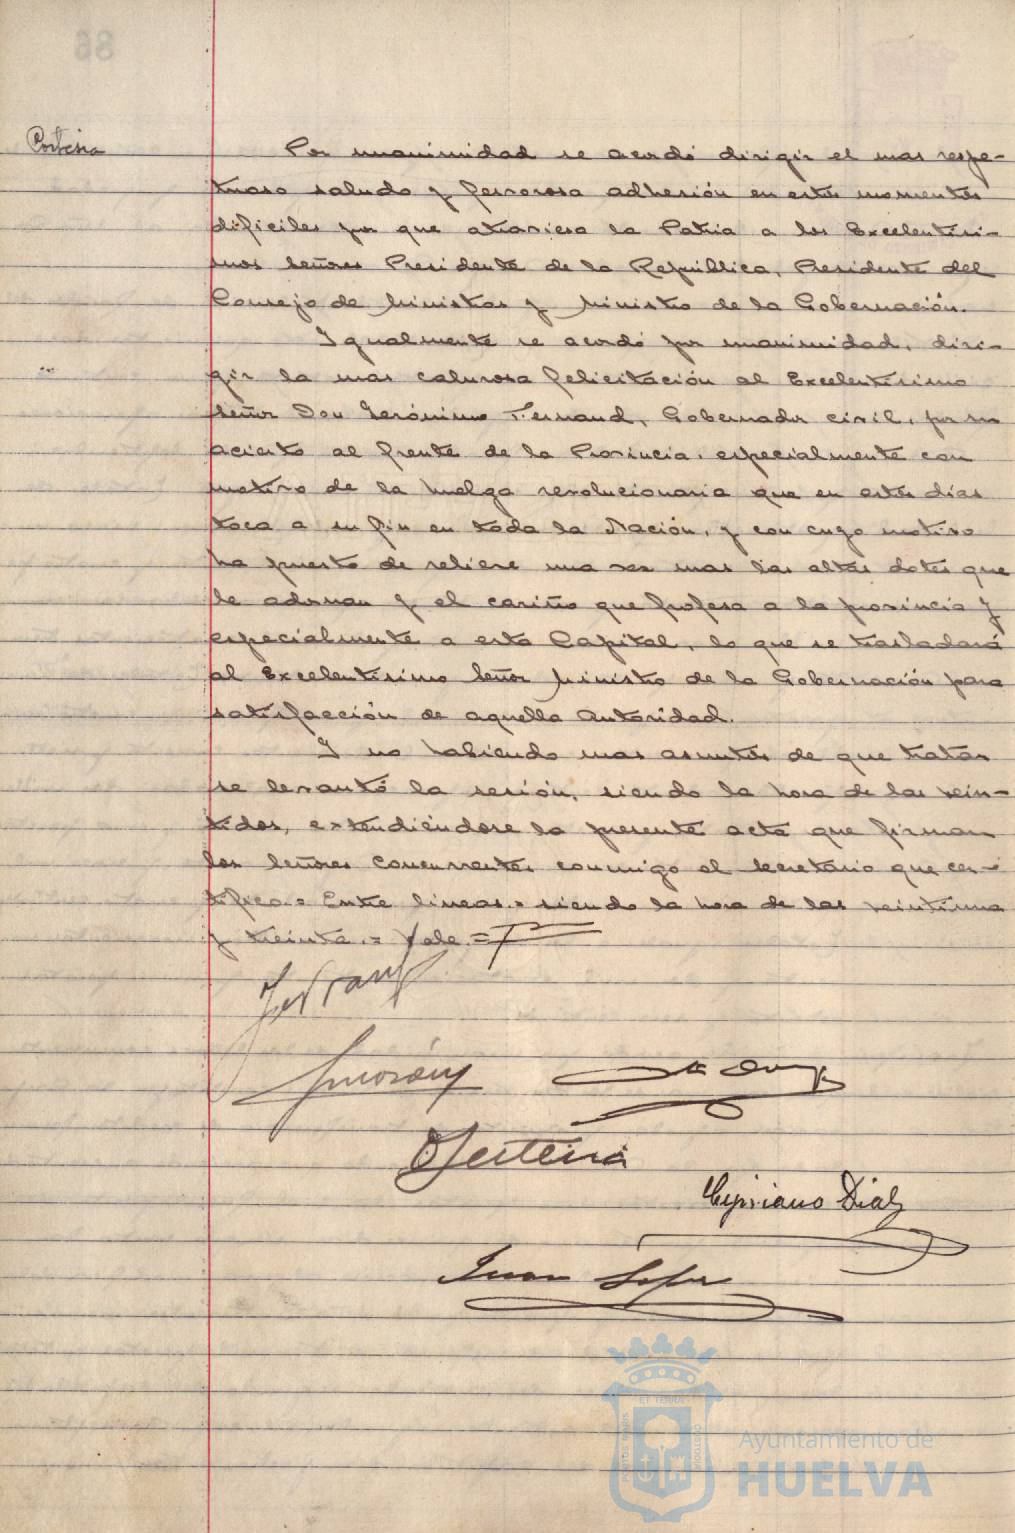 Por unanimidad se acordó dirigir el mas respe-
tuoso saludo y fervorosa adhesión en estos momentos
dificiles por que atraviesa la Patria a los Excelentisi-
mos Señores Presidente de la República, Presidente del
Consejo de Ministros y Ministro de la Gobernación.
Igualmente se acordó por unanimidad, diri-
gir la mas calurosa felicitación al Excelentisimo
Señor Don Gerónimo Fernaud, Gobernador civil, por su
acierto al frente de la Provincia, especialmente con
motivo de la huelga revolucionaria que en estos dias
toca a su fin en toda la Nación, y con cuyo motivo
ha puesto de relieve una vez mas las altas dotes que
le adornan y el cariño que profesa a la provincia y
especialmente a esta Capital, lo que se trasladará
al Excelentisimo Señor Ministro de la Gobernación para
satisfacción de aquella autoridad.
Y no habiendo mas asuntos de que tratar
se levantó la sesión, siendo la hora de las vein-
tidos, extendiéndose la presente acta que firman
los Señores concurrentes conmigo el Secretario que cer-
tifico.= Entre lineas.= siendo la hora de las veintiuna
y treinta.= Vale.=
Cipriano Diaz
Juan
Ayuntamiento de
HUELVA